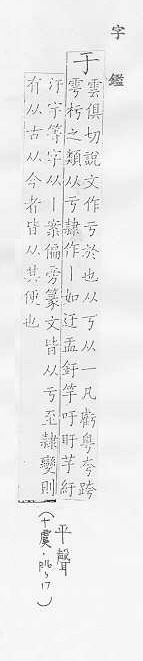 字鑑
于
雲俱切說文作亏於也从丂从一凡虧粵夸跨
雩杇之類从亏隸作丨如迂盂釪竽吁盱芋紆
汙宇等字从丨案偏旁篆文皆从亏至隸變則
有从古从今者皆从其便也
平聲
(十虞·P16〜17)